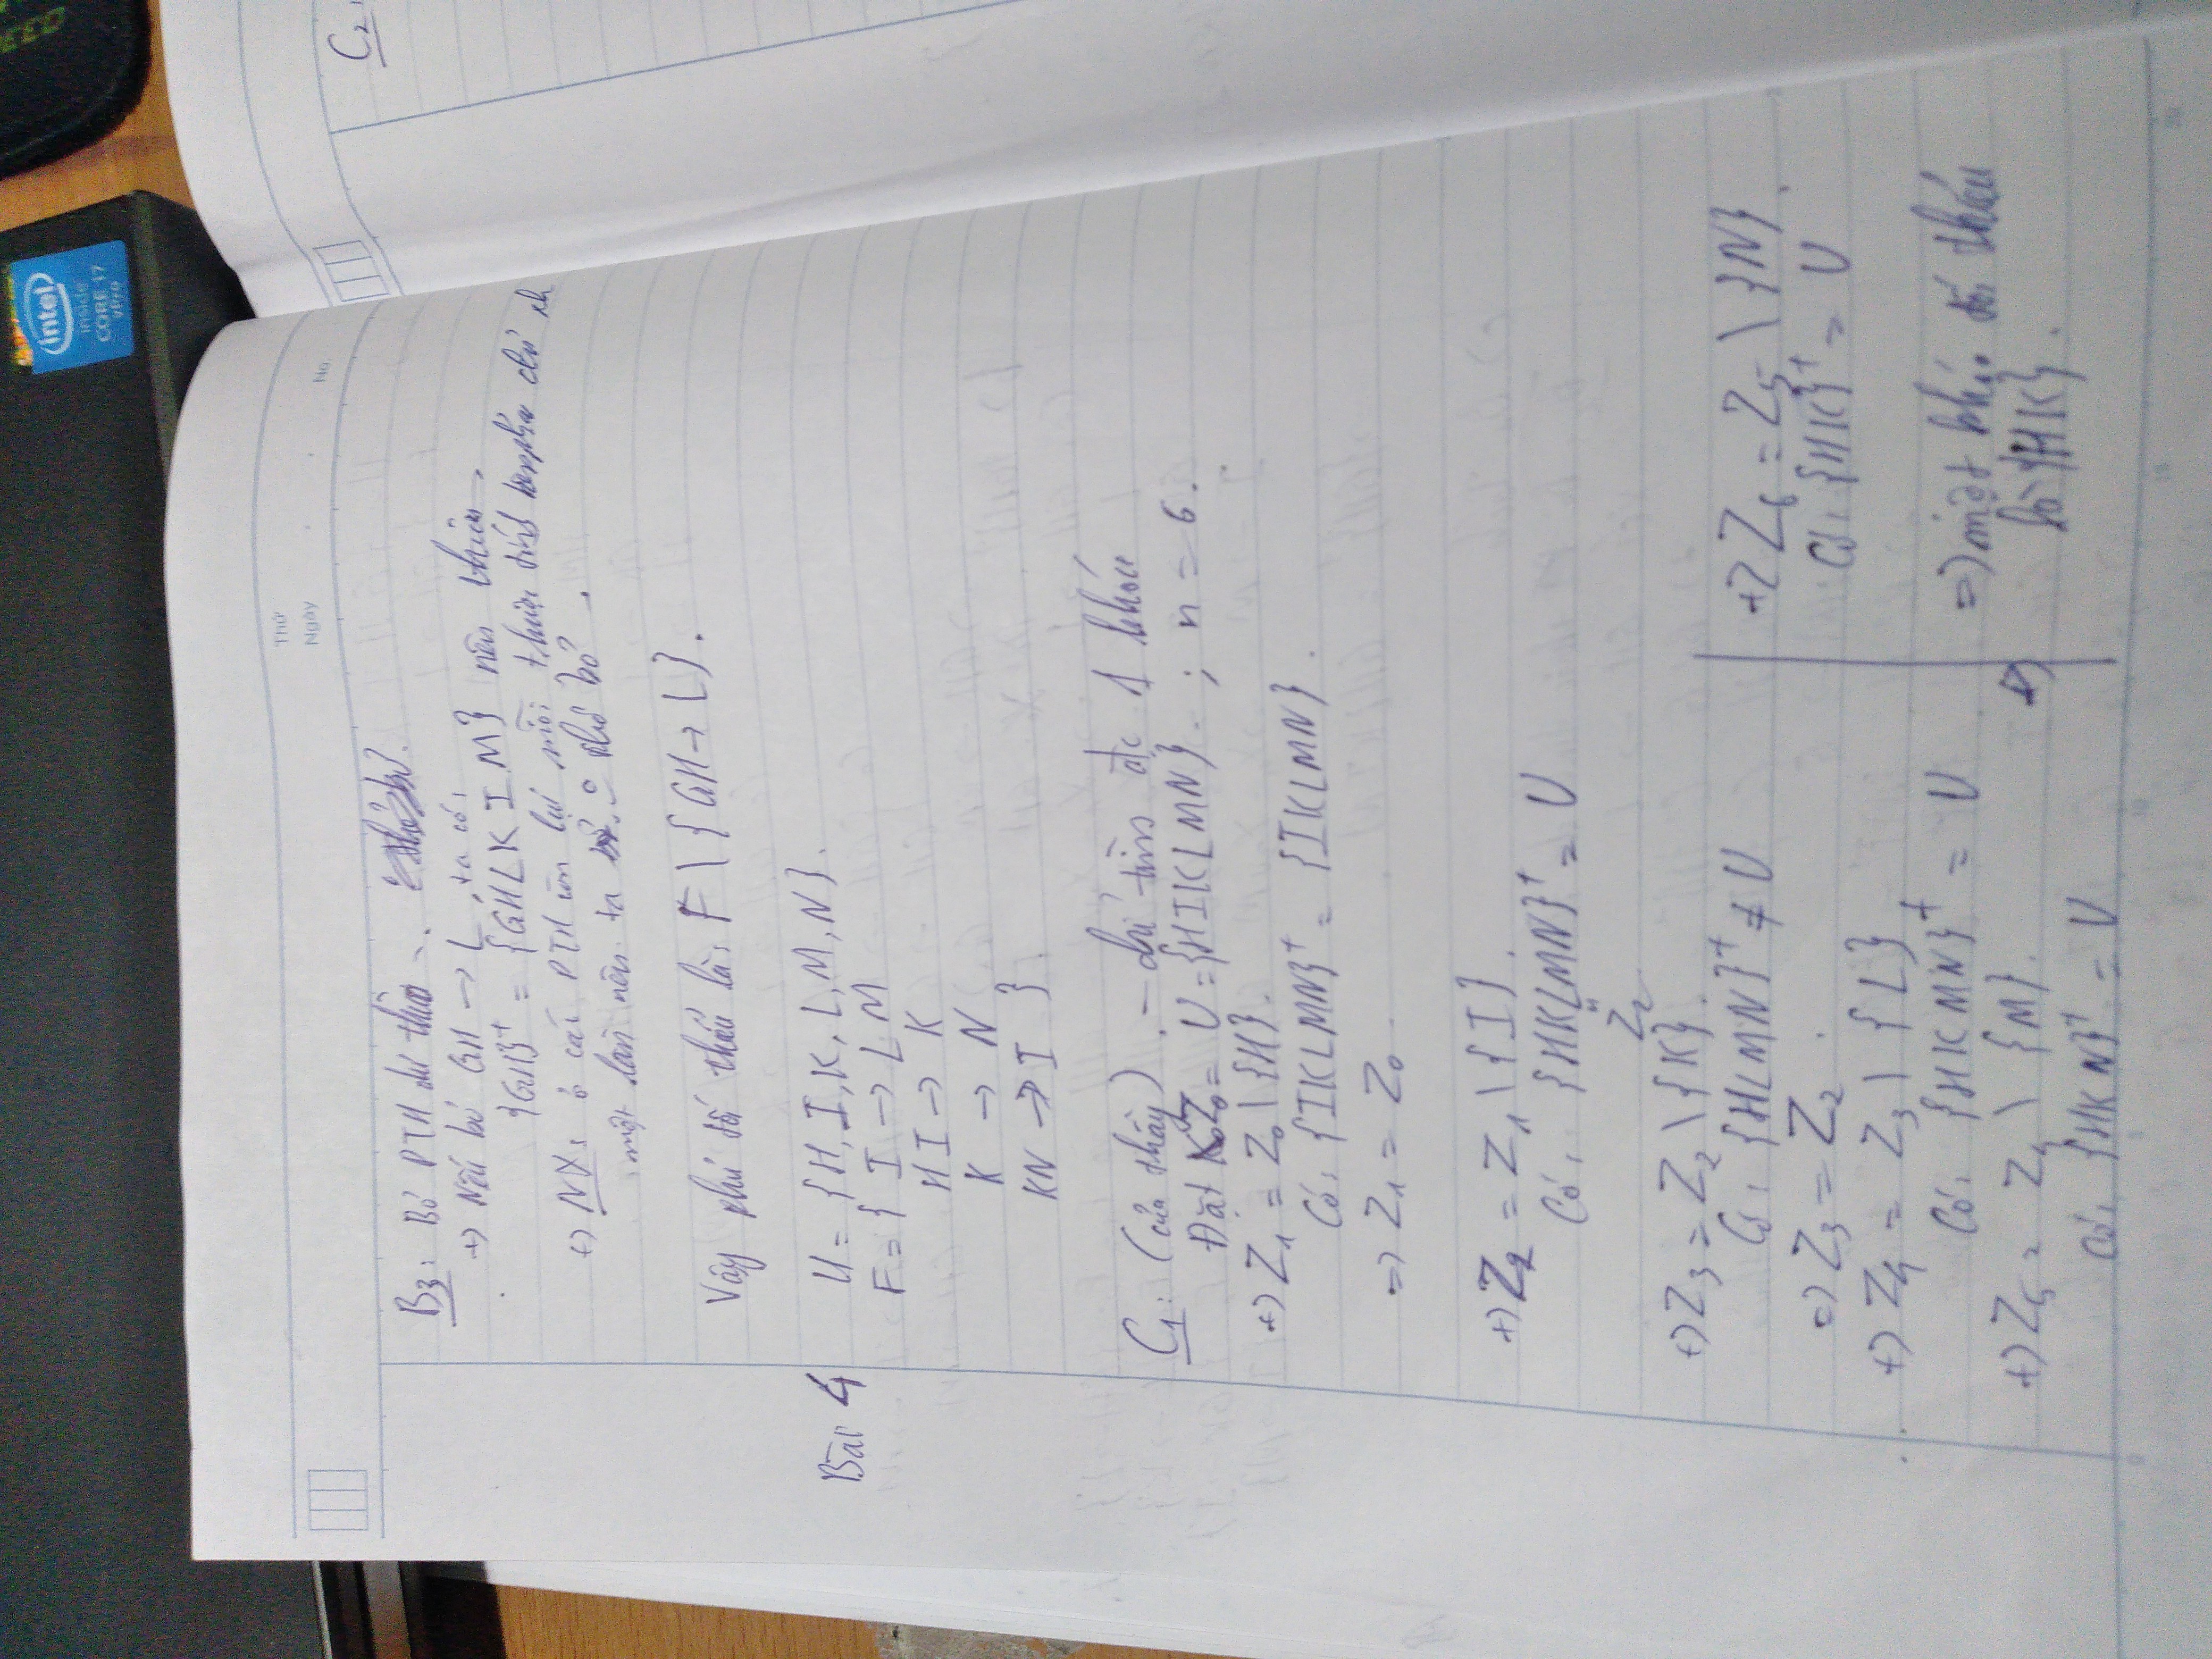 intel
inside
CORE i7
vPro
Thứ
Ngày
No.
B3: Bỏ PTH dư thừa
+) Nếu bỏ GH → L, ta có:
{GH}+ = {GHLKIM} nên thừa.
+) NX: ở các PTH còn lại mỗi thuộc tính
một lần nên ta khô bỏ.
Vậy phủ tối thiểu là: F \ {GH → L}.
Bài 4
U = {H, I, K, L, M, N}.
F = { I → LM
HI → K
K → N
KN → I }.
C1: (của thầy). - chỉ tìm đc 1 khóa
Đặt Z0 = U = {HIKLMN}. ; n = 6.
+) Z1 = Z0 \ {H}.
Có: {IKLMN}+ = {IKLMN}.
=> Z1 = Z0.
+) Z2 = Z1 \ {I}.
Có: {HKLMN}+ = U
"
Z2
+) Z3 = Z2 \ {K}.
Có: {HLMN}+ ≠ U
=> Z3 = Z2.
+) Z4 = Z3 \ {L}.
Có: {HKMN}+ = U
+) Z5 = Z4 \ {M}.
Có: {HKN}+ = U
+) Z6 = Z5 \ {N}.
Có: {HK}+ = U
=> một khóa tối thiểu
là {HK}.
C2: